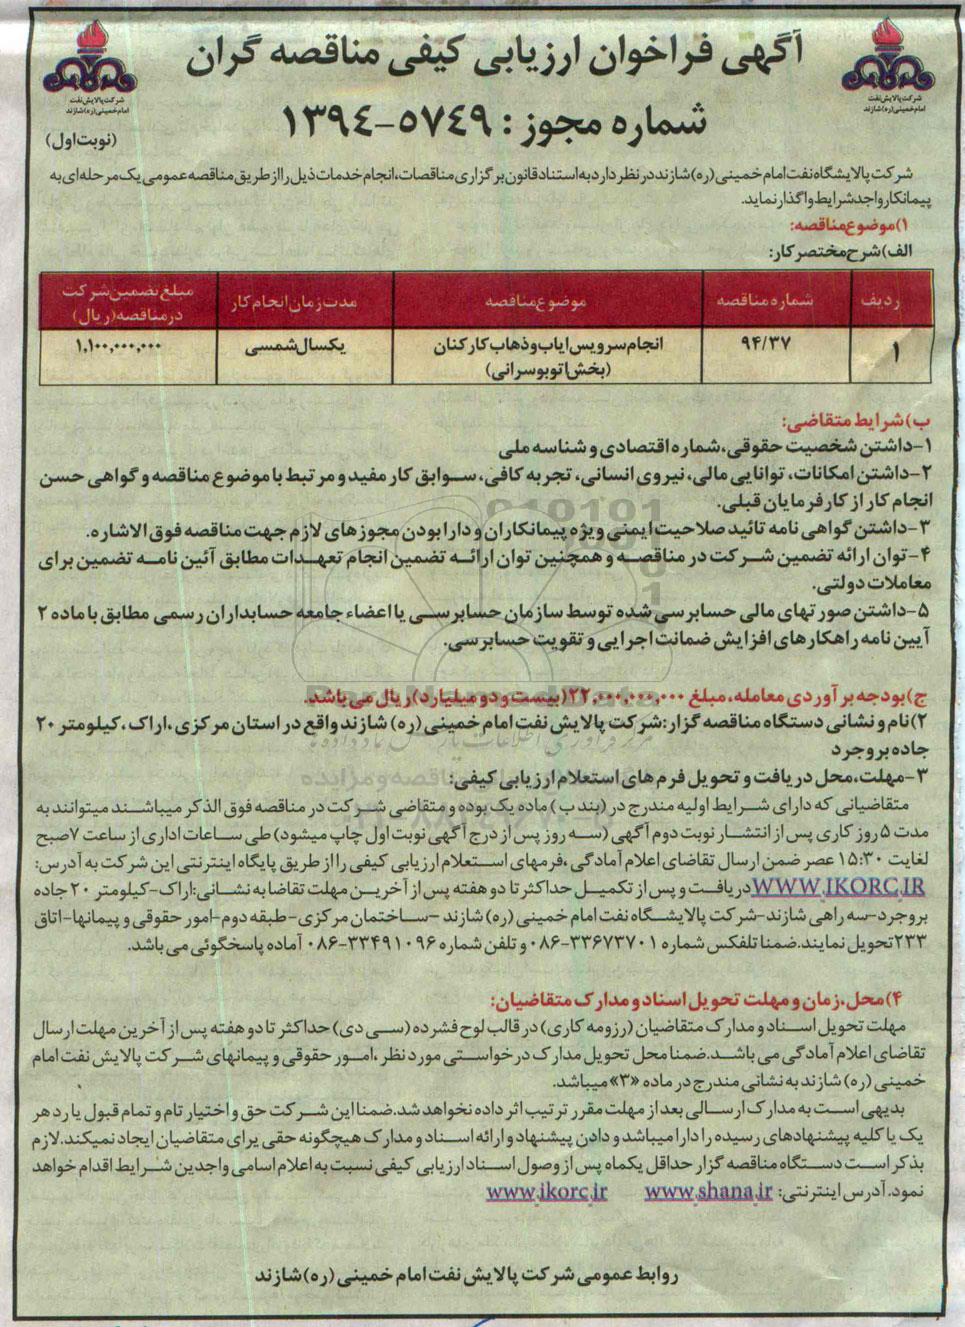 آگهی فراخوان ارزیابی کیفی مناقصه گران
شماره مجوز : ۵۷۴۹-۱۳۹۴
(نوبت اول)
شرکت پالایش نفت
امام خمینی (ره) شازند
شرکت پالایش نفت
امام خمینی (ره) شازند
شرکت پالایشگاه نفت امام خمینی (ره) شازند در نظر دارد به استناد قانون برگزاری مناقصات، انجام خدمات ذیل را از طریق مناقصه عمومی یک مرحله ای به
پیمانکار واجد شرایط واگذار نماید.
۱) موضوع مناقصه:
الف) شرح مختصر کار:
ردیف شماره مناقصه موضوع مناقصه مدت زمان انجام کار مبلغ تضمین شرکت
در مناقصه (ریال)
۱ ۹۴/۳۷ انجام سرویس ایاب و ذهاب کارکنان یکسال شمسی ۱,۱۰۰,۰۰۰,۰۰۰
(بخش اتوبوسرانی)
ب) شرایط متقاضی:
۱-داشتن شخصیت حقوقی، شماره اقتصادی و شناسه ملی
۲-داشتن امکانات، توانایی مالی، نیروی انسانی، تجربه کافی، سوابق کار مفید و مرتبط با موضوع مناقصه و گواهی حسن
انجام کار از کارفرمایان قبلی.
۳-داشتن گواهی نامه تائید صلاحیت ایمنی ویژه پیمانکاران و دارا بودن مجوزهای لازم جهت مناقصه فوق الاشاره.
۴-توان ارائه تضمین شرکت در مناقصه و همچنین توان ارائه تضمین انجام تعهدات مطابق آئین نامه تضمین برای
معاملات دولتی.
۵-داشتن صورتهای مالی حسابرسی شده توسط سازمان حسابرسی یا اعضاء جامعه حسابداران رسمی مطابق با ماده ۲
آیین نامه راهکارهای افزایش ضمانت اجرایی و تقویت حسابرسی.
ج) بودجه برآوردی معامله، مبلغ ۲۲,۰۰۰,۰۰۰,۰۰۰ (بیست و دو میلیارد) ریال می باشد.
۲) نام و نشانی دستگاه مناقصه گزار: شرکت پالایش نفت امام خمینی (ره) شازند واقع در استان مرکزی، اراک، کیلومتر ۲۰
جاده بروجرد
۳-مهلت، محل دریافت و تحویل فرم های استعلام ارزیابی کیفی:
متقاضیانی که دارای شرایط اولیه مندرج در (بند ب) ماده یک بوده و متقاضی شرکت در مناقصه فوق الذکر میباشند میتوانند به
مدت ۵ روز کاری پس از انتشار نوبت دوم آگهی (سه روز پس از درج آگهی نوبت اول چاپ میشود) طی ساعات اداری از ساعت ۷ صبح
لغایت ۱۵:۳۰ عصر ضمن ارسال تقاضای اعلام آمادگی، فرمهای استعلام ارزیابی کیفی را از طریق پایگاه اینترنتی این شرکت به آدرس:
WWW.IKORC.IR دریافت و پس از تکمیل حداکثر تا دو هفته پس از آخرین مهلت تقاضا به نشانی: اراک-کیلومتر ۲۰ جاده
بروجرد-سه راهی شازند-شرکت پالایشگاه نفت امام خمینی (ره) شازند -ساختمان مرکزی-طبقه دوم-امور حقوقی و پیمانها-اتاق
۲۳۳ تحویل نمایند. ضمنا تلفکس شماره ۳۳۶۷۳۷۰۱-۰۸۶ و تلفن شماره ۳۳۴۹۱۰۹۶-۰۸۶ آماده پاسخگوئی می باشد.
۴) محل، زمان و مهلت تحویل اسناد و مدارک متقاضیان:
مهلت تحویل اسناد و مدارک متقاضیان (رزومه کاری) در قالب لوح فشرده (سی دی) حداکثر تا دو هفته پس از آخرین مهلت ارسال
تقاضای اعلام آمادگی می باشد. ضمنا محل تحویل مدارک درخواستی مورد نظر، امور حقوقی و پیمانهای شرکت پالایش نفت امام
خمینی (ره) شازند به نشانی مندرج در ماده «۳» میباشد.
بدیهی است به مدارک ارسالی بعد از مهلت مقرر ترتیب اثر داده نخواهد شد. ضمنا این شرکت حق و اختیار تام و تمام قبول یا رد هر
یک یا کلیه پیشنهادهای رسیده را دارا میباشد و دادن پیشنهاد و ارائه اسناد و مدارک هیچگونه حقی برای متقاضیان ایجاد نمیکند. لازم
بذکر است دستگاه مناقصه گزار حداقل یکماه پس از وصول اسناد ارزیابی کیفی نسبت به اعلام اسامی واجدین شرایط اقدام خواهد
نمود. آدرس اینترنتی: www.shana.ir www.ikorc.ir
روابط عمومی شرکت پالایش نفت امام خمینی (ره) شازند